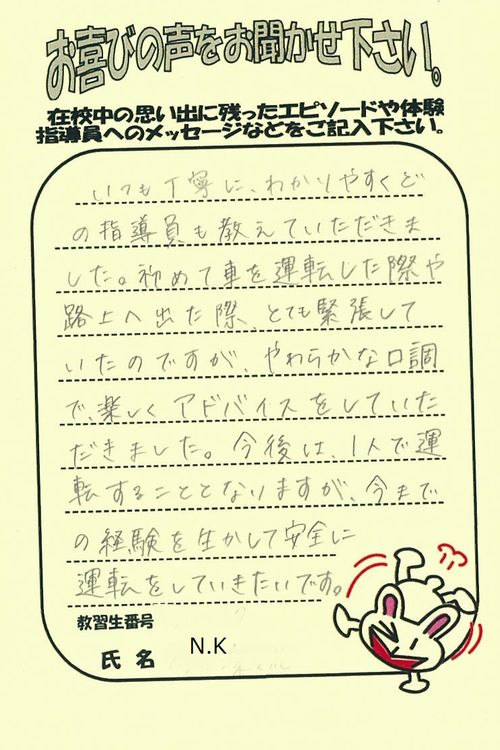 お喜びの声をお聞かせ下さい。
在校中の思い出に残ったエピソードや体験
指導員へのメッセージなどをご記入下さい。
いつも丁寧に、わかりやすくど
の指導員も教えていただきま
した。初めて車を運転した際や
路上へ出た際、とても緊張して
いたのですが、やわらかな口調
で、楽しくアドバイスをしていた
だきました。今後は、1人で運
転することとなりますが、今まで
の経験を生かして安全に
運転をしていきたいです。
教習生番号
氏名 N.K